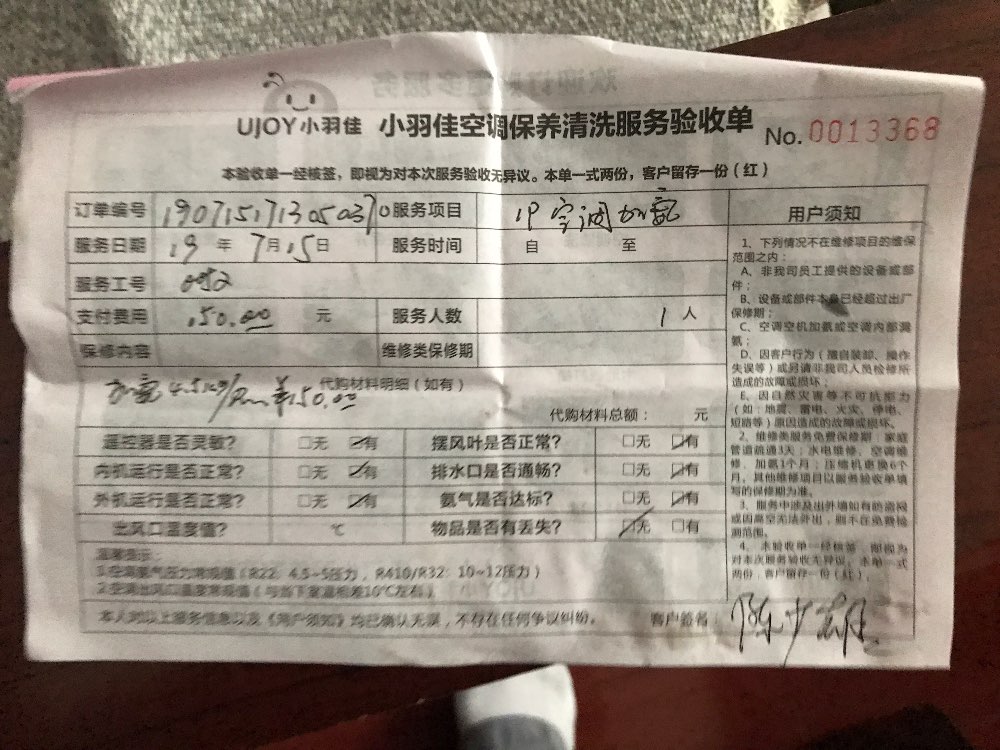 UJOY小羽佳 小羽佳空调保养清洗服务验收单 No.0013368
本验收单一经核签，即视为对本次服务验收无异议。本单一式两份，客户留存一份（红）
订单编号 190715171305037 服务项目 1P空调加氟
服务日期 19年7月15日 服务时间 自 至
服务工号 052
支付费用 150.00 元 服务人数 1人
保修内容 维修类保修期
代购材料明细（如有）
150.00
代购材料总额： 元
遥控器是否灵敏？ □无 ☑有 摆风叶是否正常？ □无 ☑有
内机运行是否正常？ □无 ☑有 排水口是否通畅？ □无 ☑有
外机运行是否正常？ □无 ☑有 氨气是否达标？ □无 ☑有
出风口温度值？ ℃ 物品是否有丢失？ ☑无 □有
温馨提示：
1.空调氨气压力常规值（R22：4.5~5压力，R410/R32：10~12压力）
2.空调出风口温度常规值（与当下室温相差10℃左右）
本人对以上服务信息以及《用户须知》均已确认无误，不存在任何争议纠纷。 客户签名：
用户须知
1、下列情况不在维修项目的维保
范围之内：
A、非我司员工提供的设备或部
件；
B、设备或部件本身已经超过出厂
保修期；
C、空调空机加氨或空调内部漏
氨；
D、因客户行为（擅自装卸、操作
失误等）或另请非我司人员检修所
造成的故障或损坏；
E、因自然灾害等不可抗拒力
（如：地震、雷电、火灾、停电、
短路等）原因造成的故障或损坏。
2、维修类服务免费保修期：家庭
管道疏通3天；水电维修、空调维
修、加氨1个月；压缩机更换6个
月。其他维修项目以服务验收单填
写的保修期为准。
3、服务中涉及出外墙如有防盗网
或因高空无法外出，则不在免费检
测范围。
4、本验收单一经核签，即视为
对本次服务验收无异议。本单一式
两份，客户留存一份（红）。